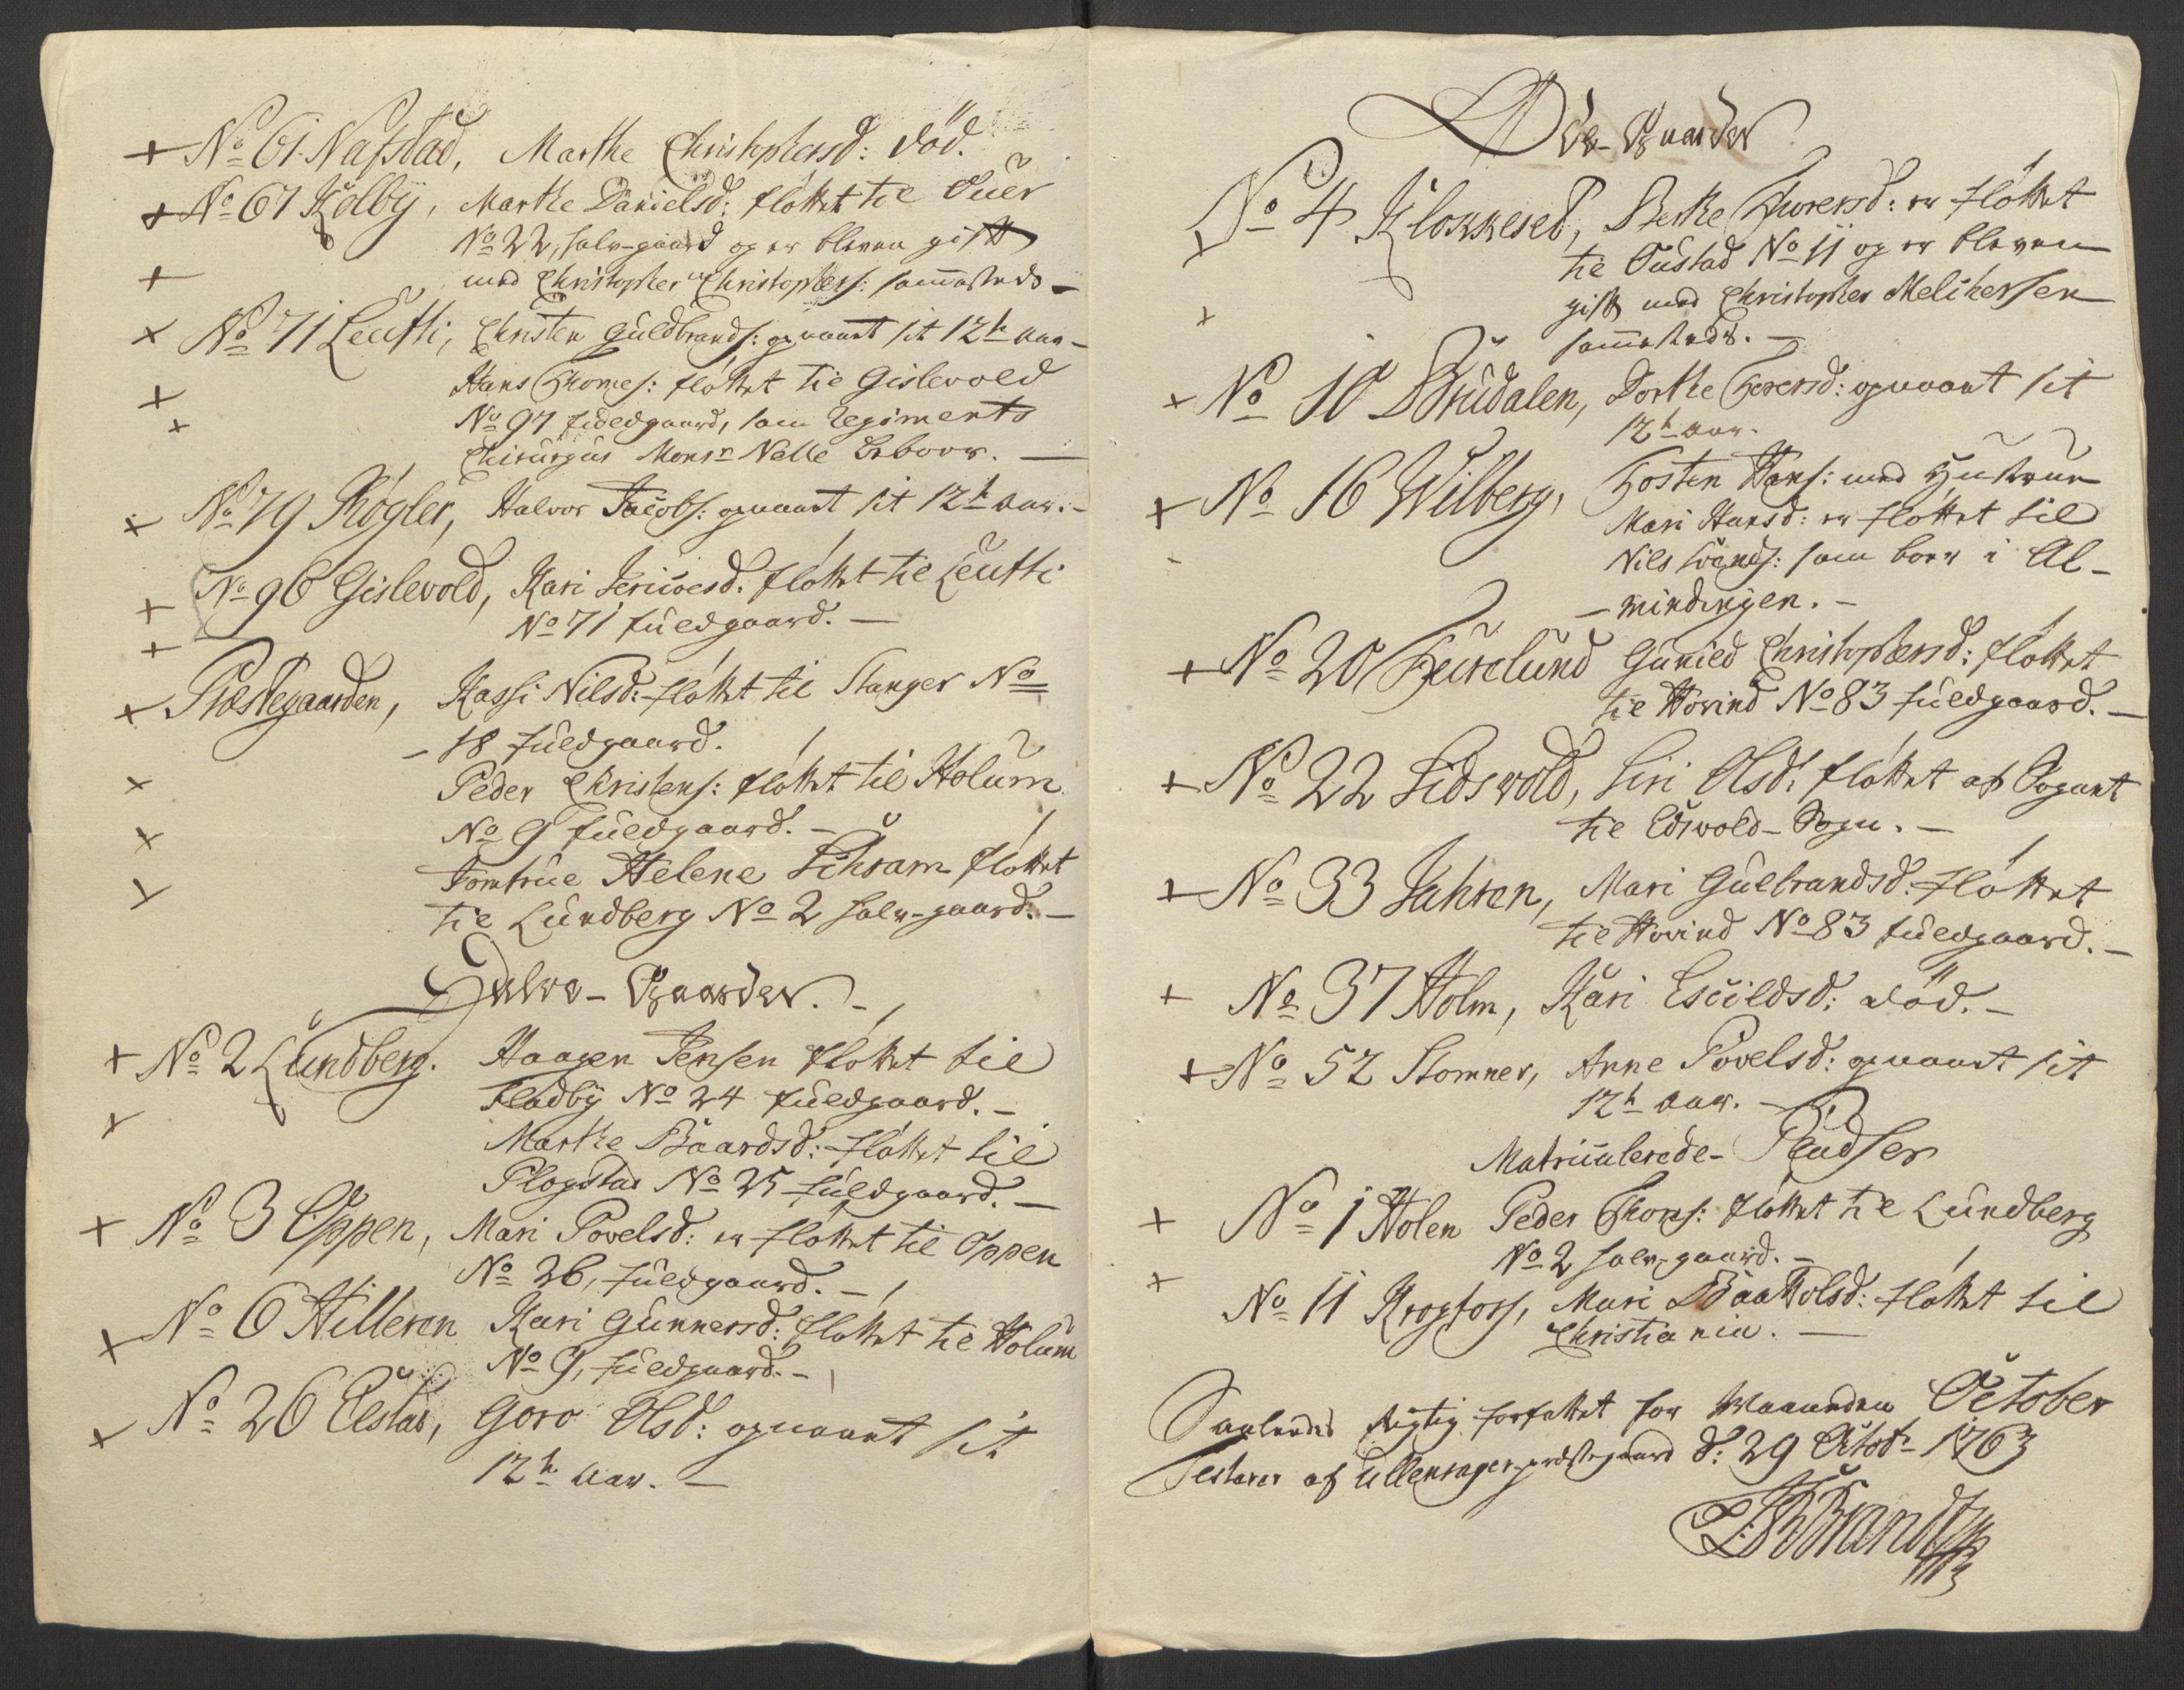 + No 61 Nafstad, Marthe Christophersd: död.
+ No 67 Kolby, Marthe Danielsd: flóttet til Ouer
No 22, halv-gaard og er bleven gift
+ med Christopher Christophers: sammesteds –
+ No 71 Leufti, Christen Guldbrands: opnaaet sit 12te aar –
+ Hans Thomes: flóttet til Gislevold
+ No 97 fuldgaard, som Regiments
Chirurgus Monsr Nelle beboer. –
+ No 79 Rógler, Halvor Jacobs: opnaaet sit 12te aar. –
+ No 96 Gislevold, Kari Iveriöesd: flóttet til Leufti
+ No 71 fuldgaard. –
+ Præstegaarden, Kassi Nilsd: flóttet til Stanger No
– 18 fuldgaard.
+ Peder Christens: flóttet til Holum
+ No 9 fuldgaard. –
+ Jomfrue Helene flóttet
til Lundberg No 2 halv-gaard. –
Halve-Gaarder. –
+ No 2 Lundberg. Haagen Jensen flóttet til
+ Fladby No 24 fuldgaard. –
Marthe Baardsd: flóttet til
Plogstad No 25 fuldgaard. –
+ No 3 Oppen, Mari Povelsd: er flóttet til Oppen
No 26, fuldgaard. –
+ No 6 Hilleren Kari Gunnersd: flóttet til Holum
No 9, fuldgaard. –
+ No 26 Elstad, Goro Olsd: opnaaet sit
12te aar. –
Øde-Gaarder
+ No 4 Klokkered, Berthe Iversd: er flóttet
til Tustad No 11 og er bleven
+ gift med Christopher Melchersen
sammesteds. –
+ No 10 Brudalen, Dorthe Iversd: opnaaet sit
12te aar.
+ No 16 Wilberg, Tosten Hans: med Hustrue
Mari Hansd: er flóttet til
- Nils Svends: som boer i Al-
– mindingen. –
+ No 20 Furelund Gunild Christophersd: flóttet
til Hovind No 83 fuldgaard. –
+ No 22 Lidsvold, Siri Olsd: flóttet af Sognet
til Edsvold-Sogn. –
+ No 33 Jahren, Mari Gulbrandsd: flóttet
til Hovind No 83 fuldgaard. –
+ No 37 Holm, Kari Escildsd: död. –
+ No 52 Stomner, Anne Povelsd: opnaaet sit
12te aar. –
Matriculerede-Pladser
+ No 1 Holen Peder Thoms: flóttet til Lundberg
No 2 halv-gaard. –
+ No 11 Krogfoss, Mari Baattolsd: flóttet til
Christiania. –
Saaledes rigtig forfattet for Maaneden October
Testerer af Ullensager-præstegaard d: 29 Octobr 1763
Brandt